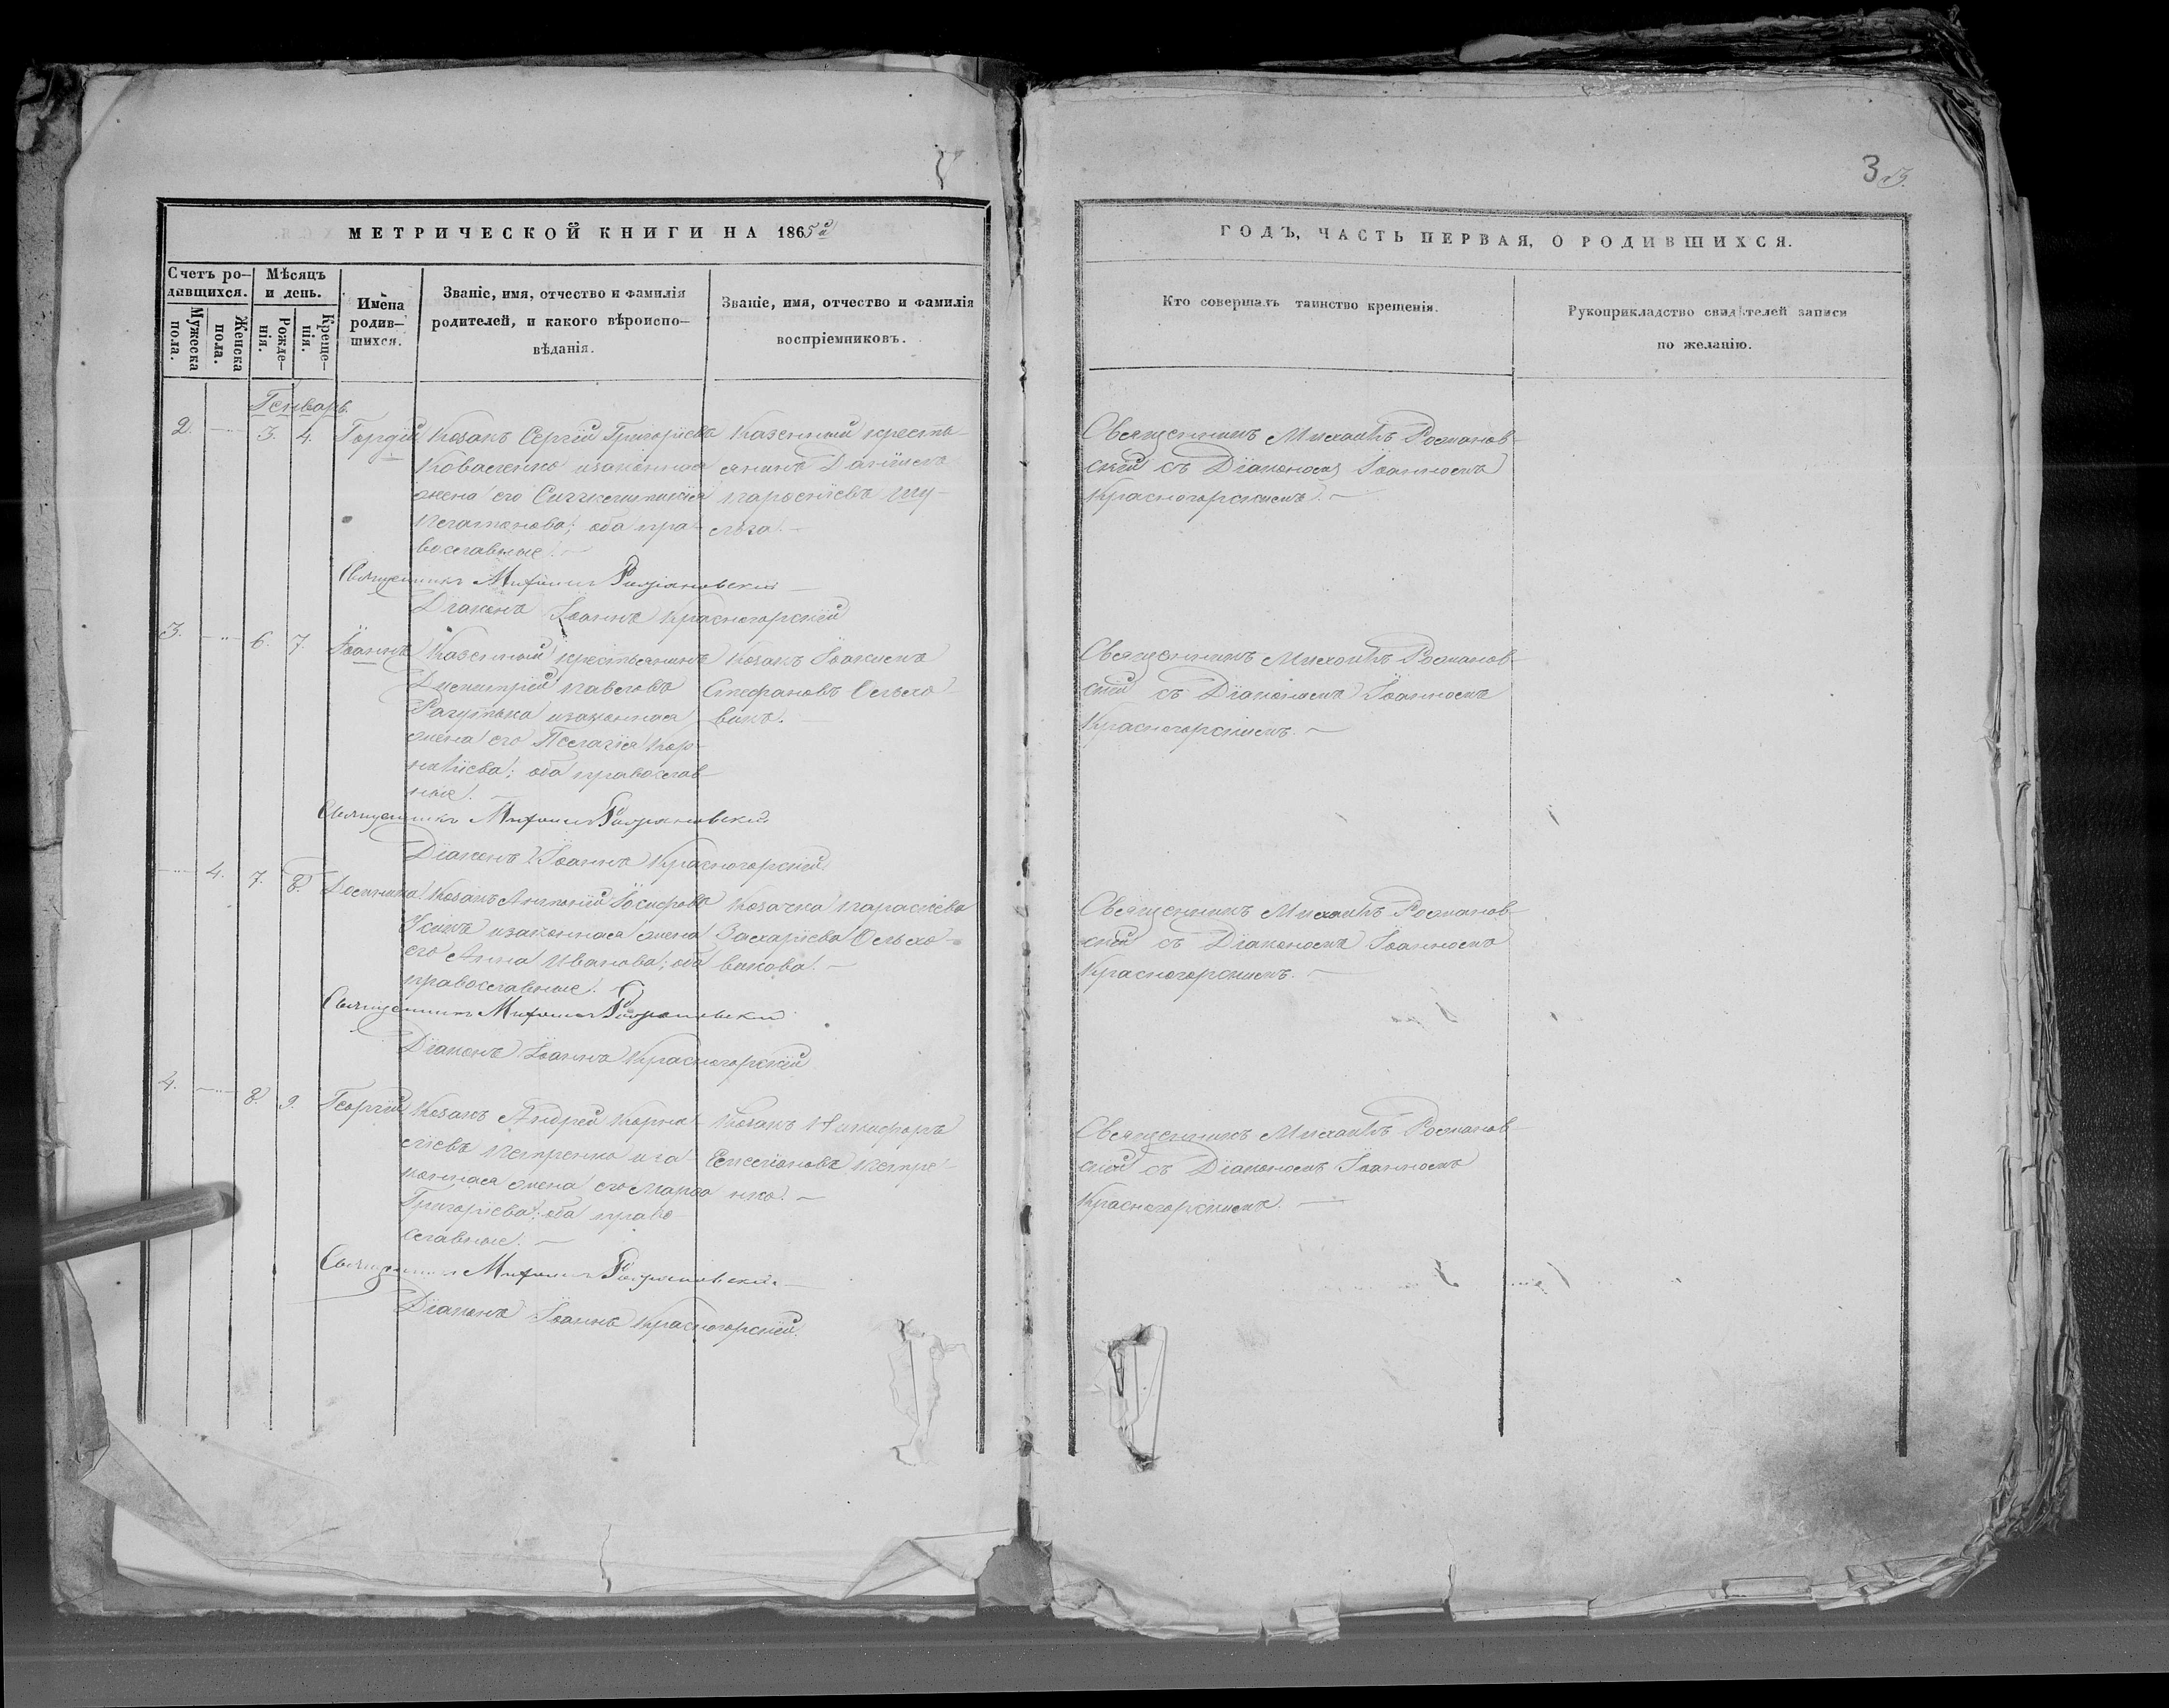 3 3.
МЕТРИЧЕСКОЙ КНИГИ НА 1865й
ГОДЪ, ЧАСТЬ ПЕРВАЯ, О РОДИВШИХСЯ.
Счетъ ро-
дившихся.
Мужеска
пола.
Женска
пола.
Мѣсяцъ
и день.
Рожде-
нія.
Креще-
нія.
Имена
родив-
шихся.
Званіе, имя, отчество и фамилія
родителей, и какого вѣроиспо-
вѣданія.
Званіе, имя, отчество и фамилія
воспріемниковъ.
Кто совершалъ таинство крещенія.
Рукоприкладство свидѣтелей записи
по желанію.
Генварь
2. 3. 4. Гордій
Козакъ Сергій Григоріевъ
Коваленко изаконная
жена его
оба пра-
вославные.
Казенный кресть-
янинъ Даніилъ
Священникъ Михаилъ Романов-
скій съ Діакономъ Іоанномъ
Красногорскимъ.
Священникъ Михаилъ Романовскій
Діаконъ Іоаннъ Красногорскій
3. 6. 7. Іоаннъ
Казенный крестьянинъ
Димитрій Павловъ
изаконная
жена его Пелагія Кор-
ниліева; оба православ-
ные.
Козакъ Іоакимъ
Стефановъ Ольхо-
викъ.
Священникъ Михаилъ Романов-
скій съ Діакономъ Іоанномъ
Красногорскимъ.
Священникъ Михаилъ Романовскій
Діаконъ Іоаннъ Красногорскій
4. 7. 8. Домника
Козакъ Антоній Іосифовъ
изаконная жена
его Анна Иванова; оба
православные.
Козачка Параскева
Захаріева Ольхо-
викова.
Священникъ Михаилъ Романов-
скій съ Діакономъ Іоанномъ
Красногорскимъ.
Священникъ Михаилъ Романовскій
Діаконъ Іоаннъ Красногорскій
4. 8. 9. Георгій
Козакъ Андрей Корни-
ліевъ Петренко иза-
конная жена его Марѳа
Григоріева; оба право-
славные.
Козакъ Никифоръ
Емеліановъ Петре-
нко.
Священникъ Михаилъ Романов-
скій съ Діакономъ Іоанномъ
Красногорскимъ.
Священникъ Михаилъ Романовскій
Діаконъ Іоаннъ Красногорскій.